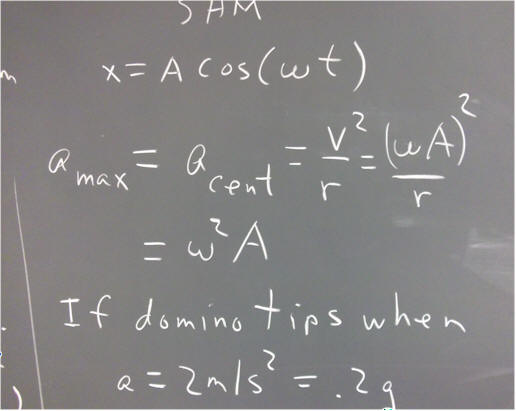 SHM
x = A cos(ωt)
a max = a cent = v²/r = (ωA)²/r
= ω²A
If domino tips when
a = 2m/s² = .2g